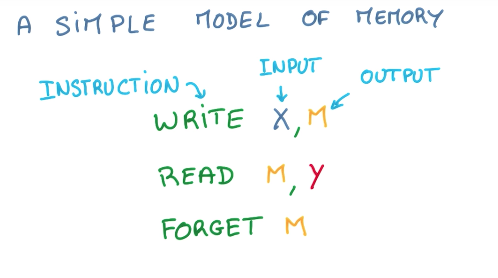 A SiMPLE MODEL OF MEMORY
INPUT
INSTRUCTiON
OUTPUT
WRiTE X, M
READ M, Y
FORGET M